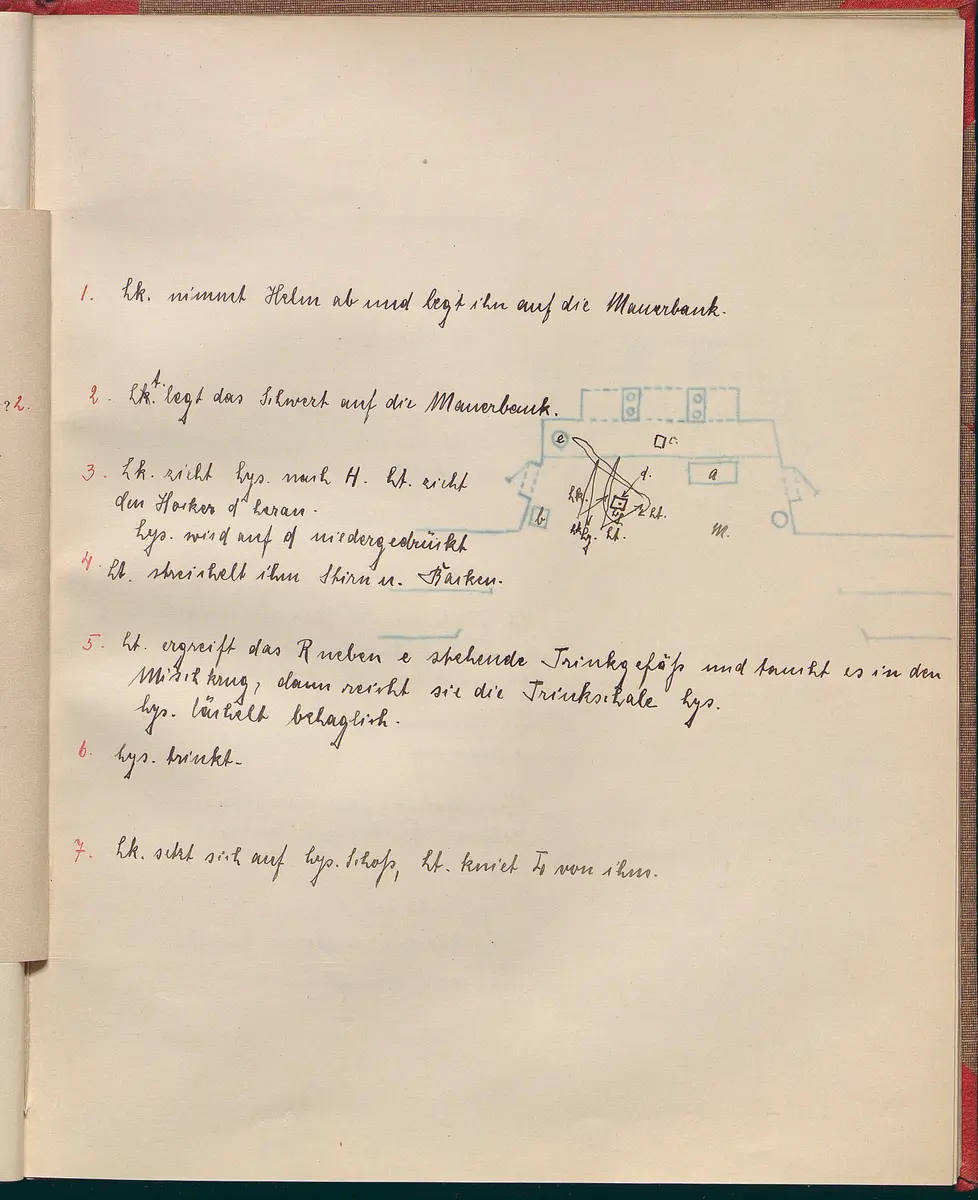 1. hk. nimmt Helm ab und legt ihn auf die Mauerbank.
? 2.
2. ht. legt das Schwert auf die Mauerbank.
3. hk. zieht hys. nach H. ht. zieht
den Hocker d heran.
hys. wird auf d niedergedrückt
4. ht. streichelt ihm Stirn u. Backen.
e c.
a
d.
hk. ht.
b
hk. hys. ht.
m.
5. ht. ergreift das R neben e stehende Trinkgefäß und taucht es in den
Mischkrug, dann reicht sie die Trinkschale hys.
hys. lächelt behaglich.
6. hys. trinkt.
7. hk. setzt sich auf hys. Schoß, ht. kniet von ihm.